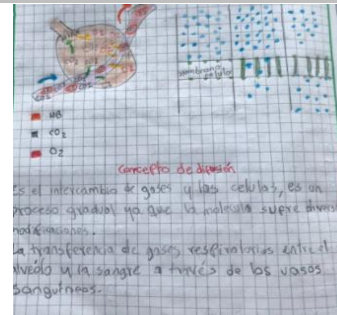 membrana
celular
HB
CO2
O2
concepto de difusión
Es el intercambio de gases y las celulas, es un
proceso gradual ya que la molecula supre diversas
modificaciones.
La transferencia de gases respiratorios entre el
alveólo y la sangre a través de los vasos
sanguíneos.